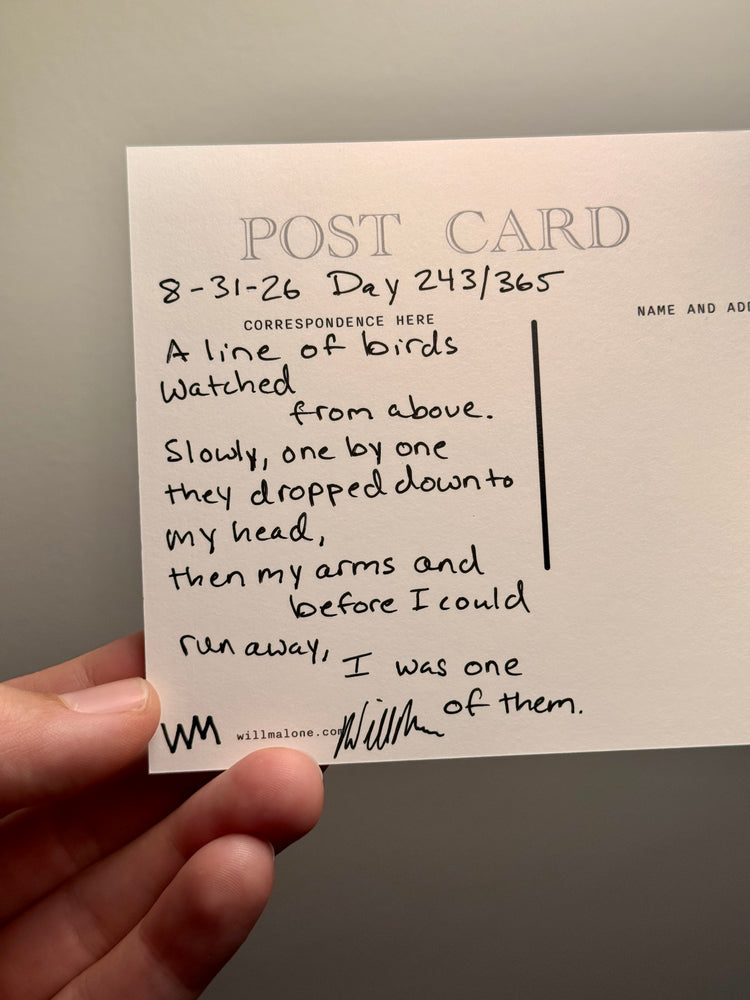 POST CARD
8-31-26 Day 243/365
CORRESPONDENCE HERE
NAME AND
A line of birds
watched
from above.
Slowly, one by one
they dropped down to
my head,
then my arms and
before I could
run away,
I was one
of them.
WM willmalone.com